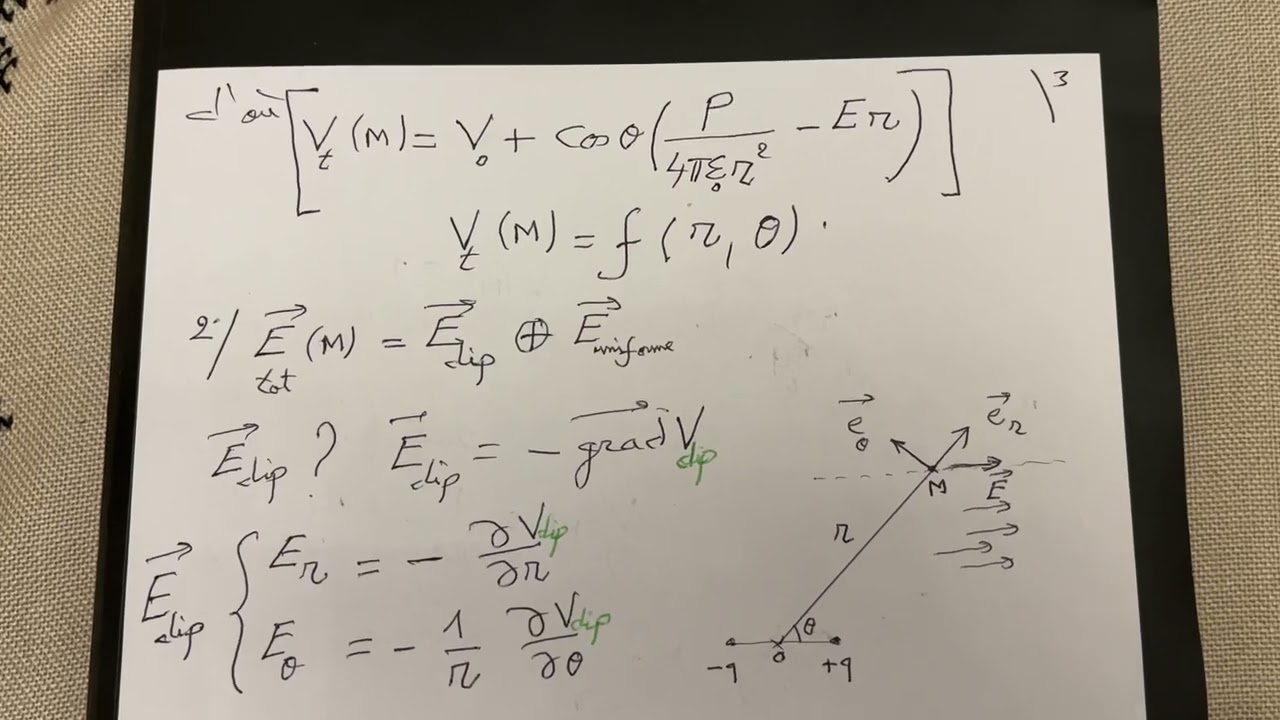 d'où [V_t (M) = V_0 + cos θ (P / 4πε_0 r² − E r)] \3
V_t (M) = f (r, θ) .
2°/ \vec{E}_tot (M) = \vec{E}_dip ⊕ \vec{E}_uniforme
\vec{E}_dip ? \vec{E}_dip = − \vec{grad} V_dip
\vec{E}_dip { E_r = − ∂V_dip / ∂r
E_θ = − 1/r ∂V_dip / ∂θ
\vec{e}_θ \vec{e}_r
M \vec{E}
r
θ
−q o +q